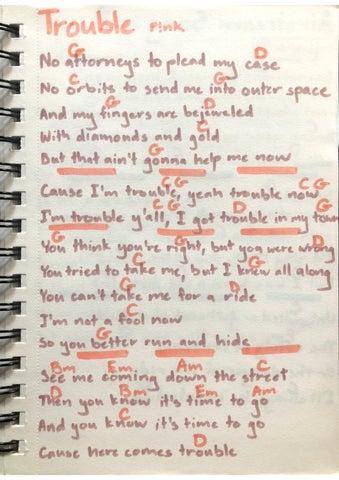 Trouble P!nk
G D
No attorneys to plead my case
C G
No orbits to send me into outer space
G D
And my fingers are bejeweled
C
With diamonds and gold
G
But that ain't gonna help me now
C G C G
Cause I'm trouble, yeah trouble now
C G D
I'm trouble y'all, I got trouble in my town
G G D
You think you're right, but you were wrong
C G
You tried to take me, but I knew all along
G D
You can't take me for a ride
C
I'm not a fool now
G
So you better run and hide
Bm Em Am C
See me coming down the street
D Bm Em Am
Then you know it's time to go
C
And you know it's time to go
D
Cause here comes trouble